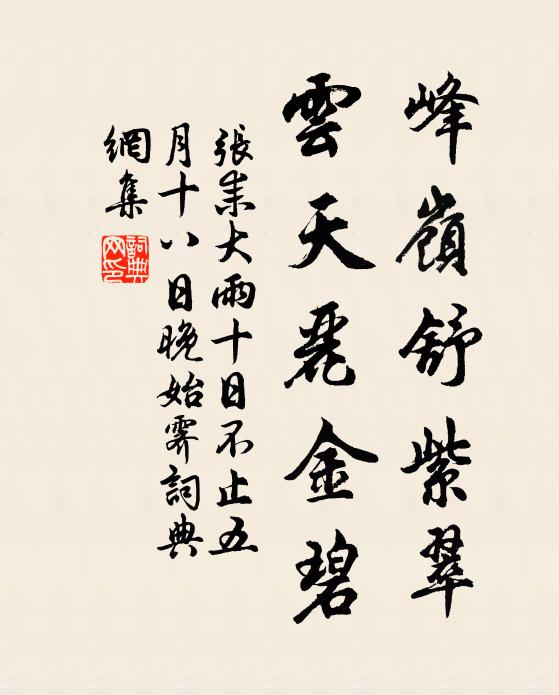 峰嶺舒紫翠
雲天麗金碧
張耒大雨十日不止五
月十八日晚始霽詞典
網集
詞典
网印